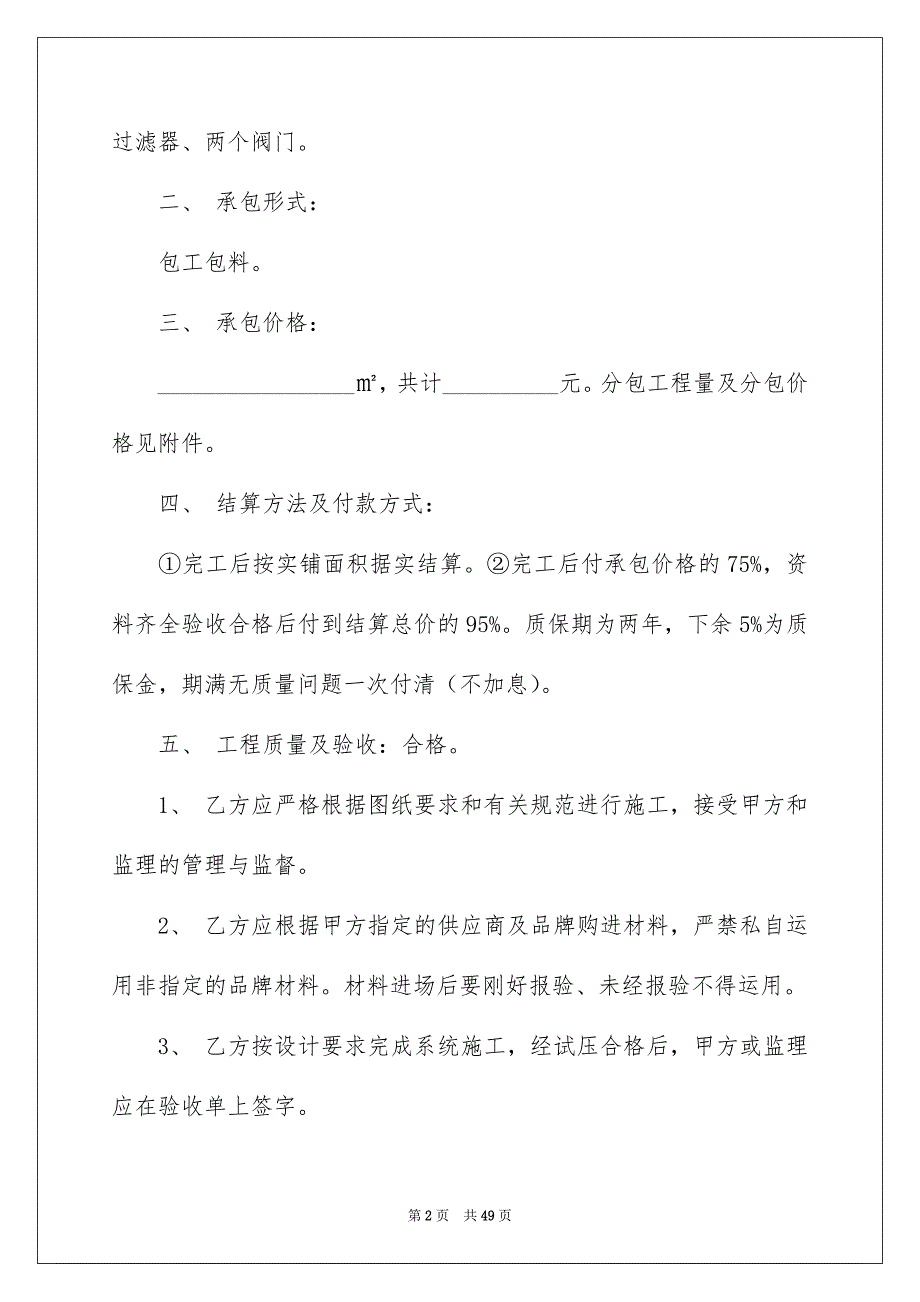 过滤器、两个阀门。
二、 承包形式：
包工包料。
三、 承包价格：
_________________m²，共计__________元。分包工程量及分包价
格见附件。
四、 结算方法及付款方式：
①完工后按实铺面积据实结算。②完工后付承包价格的 75%，资
料齐全验收合格后付到结算总价的 95%。质保期为两年，下余 5%为质
保金，期满无质量问题一次付清（不加息）。
五、 工程质量及验收：合格。
1、 乙方应严格根据图纸要求和有关规范进行施工，接受甲方和
监理的管理与监督。
2、 乙方应根据甲方指定的供应商及品牌购进材料，严禁私自运
用非指定的品牌材料。材料进场后要刚好报验、未经报验不得运用。
3、 乙方按设计要求完成系统施工，经试压合格后，甲方或监理
应在验收单上签字。
第 2 页 共 49 页